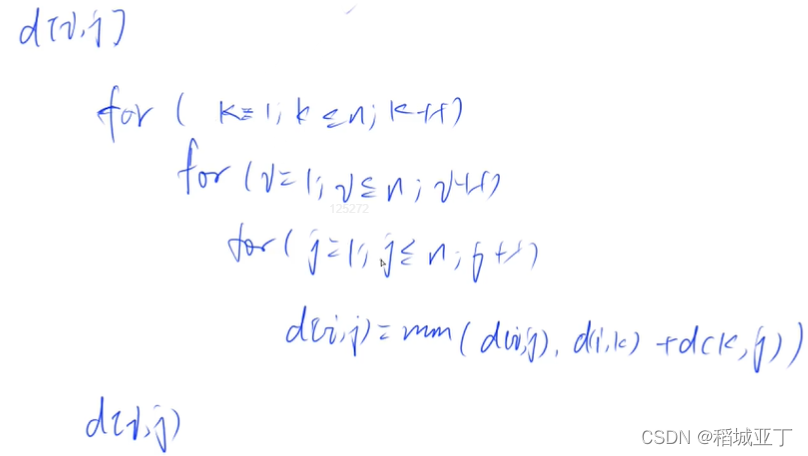 d[i,j]
for ( k=1; k≤n; k++)
for (i=1; i≤n; i++)
125272
for( j=1; j≤n; j++)
d(i,j)=min(d(i,j), d(i,k)+d(k,j))
d[i,j)
CSDN @稻城亚丁